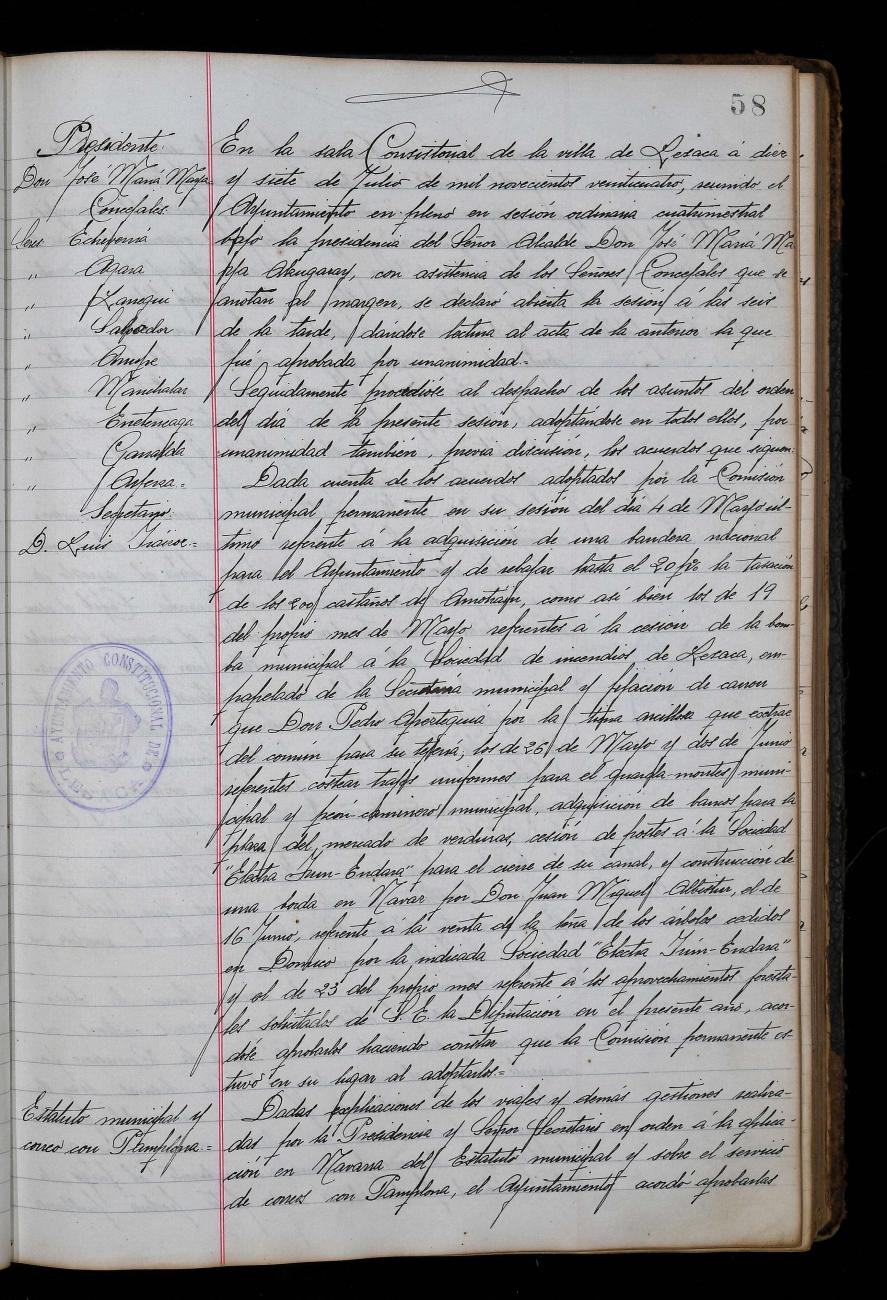 58
Presidente.
Don José María Mayra
Concejales.
Sres Echeverría
" Agara
" Zanequi
" Salvador
" Arrupe
" Marichalar
" Eneteneaga
" Garralda
"
Secretario.
D. Luis
En la sala Consistorial de la villa de Lesaca á diez
y siete de Julio de mil novecientos veinticuatro, reunido el
Ayuntamiento en pleno en sesión ordinaria cuatrimestral
bajo la presidencia del Señor Alcalde Don José María Ma
con asistencia de los Señores Concejales que se
anotan al margen, se declaró abierta la sesión á las seis
de la tarde, dandose lectura al acta de la anterior la que
fué aprobada por unanimidad.=
Seguidamente procedióse al despacho de los asuntos del orden
del día de la presente sesión, adoptandose en todos ellos, por
unanimidad también, previa discusión, los acuerdos que siguen:
Dada cuenta de los acuerdos adoptados por la Comisión
municipal permanente en su sesión del día 4 de Mayo úl-
timo referente á la adquisición de una bandera nacional
para el Ayuntamiento y de rebajar hasta el 20 p% la tasación
de los 200 castaños de como asi bien los de 19
del propio mes de Mayo referentes á la cesion de la bom-
ba municipal á la Sociedad de incendios de Lesaca, em-
papelado de la Secretaría municipal y fijación de canon
que Don Pedro Aperteguia por la tierra arcillosa que extrae
del común para su tejería; los de 26 de Mayo y dos de Junio
referentes costear trajes uniformes para el guarda-montes muni-
cipal y peón-caminero municipal, adquisición de bancos para la
plaza del mercado de verduras, cesión de postes á la Sociedad
"Electra Irún-Endara" para el cierre de su canal, y construcción de
una borda en Navaz por Don Juan Miguel Albistur, el de
16 Junio, referente á la venta de la leña de los árboles cedidos
en Domico por la indicada Sociedad "Electra Irún-Endara"
y el de 23 del propio mes referente á los aprovechamientos foresta-
les solicitados de S. E. la Diputación en el presente año, acor-
dóse aprobarlos haciendo constar que la Comisión permanente es-
tuvo en su lugar al adoptarlos.=
Estatuto municipal y
correo con Pamplona=
Dadas explicaciones de los viajes y demás gestiones realiza-
das por la Presidencia y Señor Secretario en orden á la aplica-
ción en Navarra del Estatuto municipal y sobre el servicio
de correos con Pamplona, el Ayuntamiento acordó aprobarlas
AYUNTAMIENTO CONSTITUCIONAL DE
LESACA